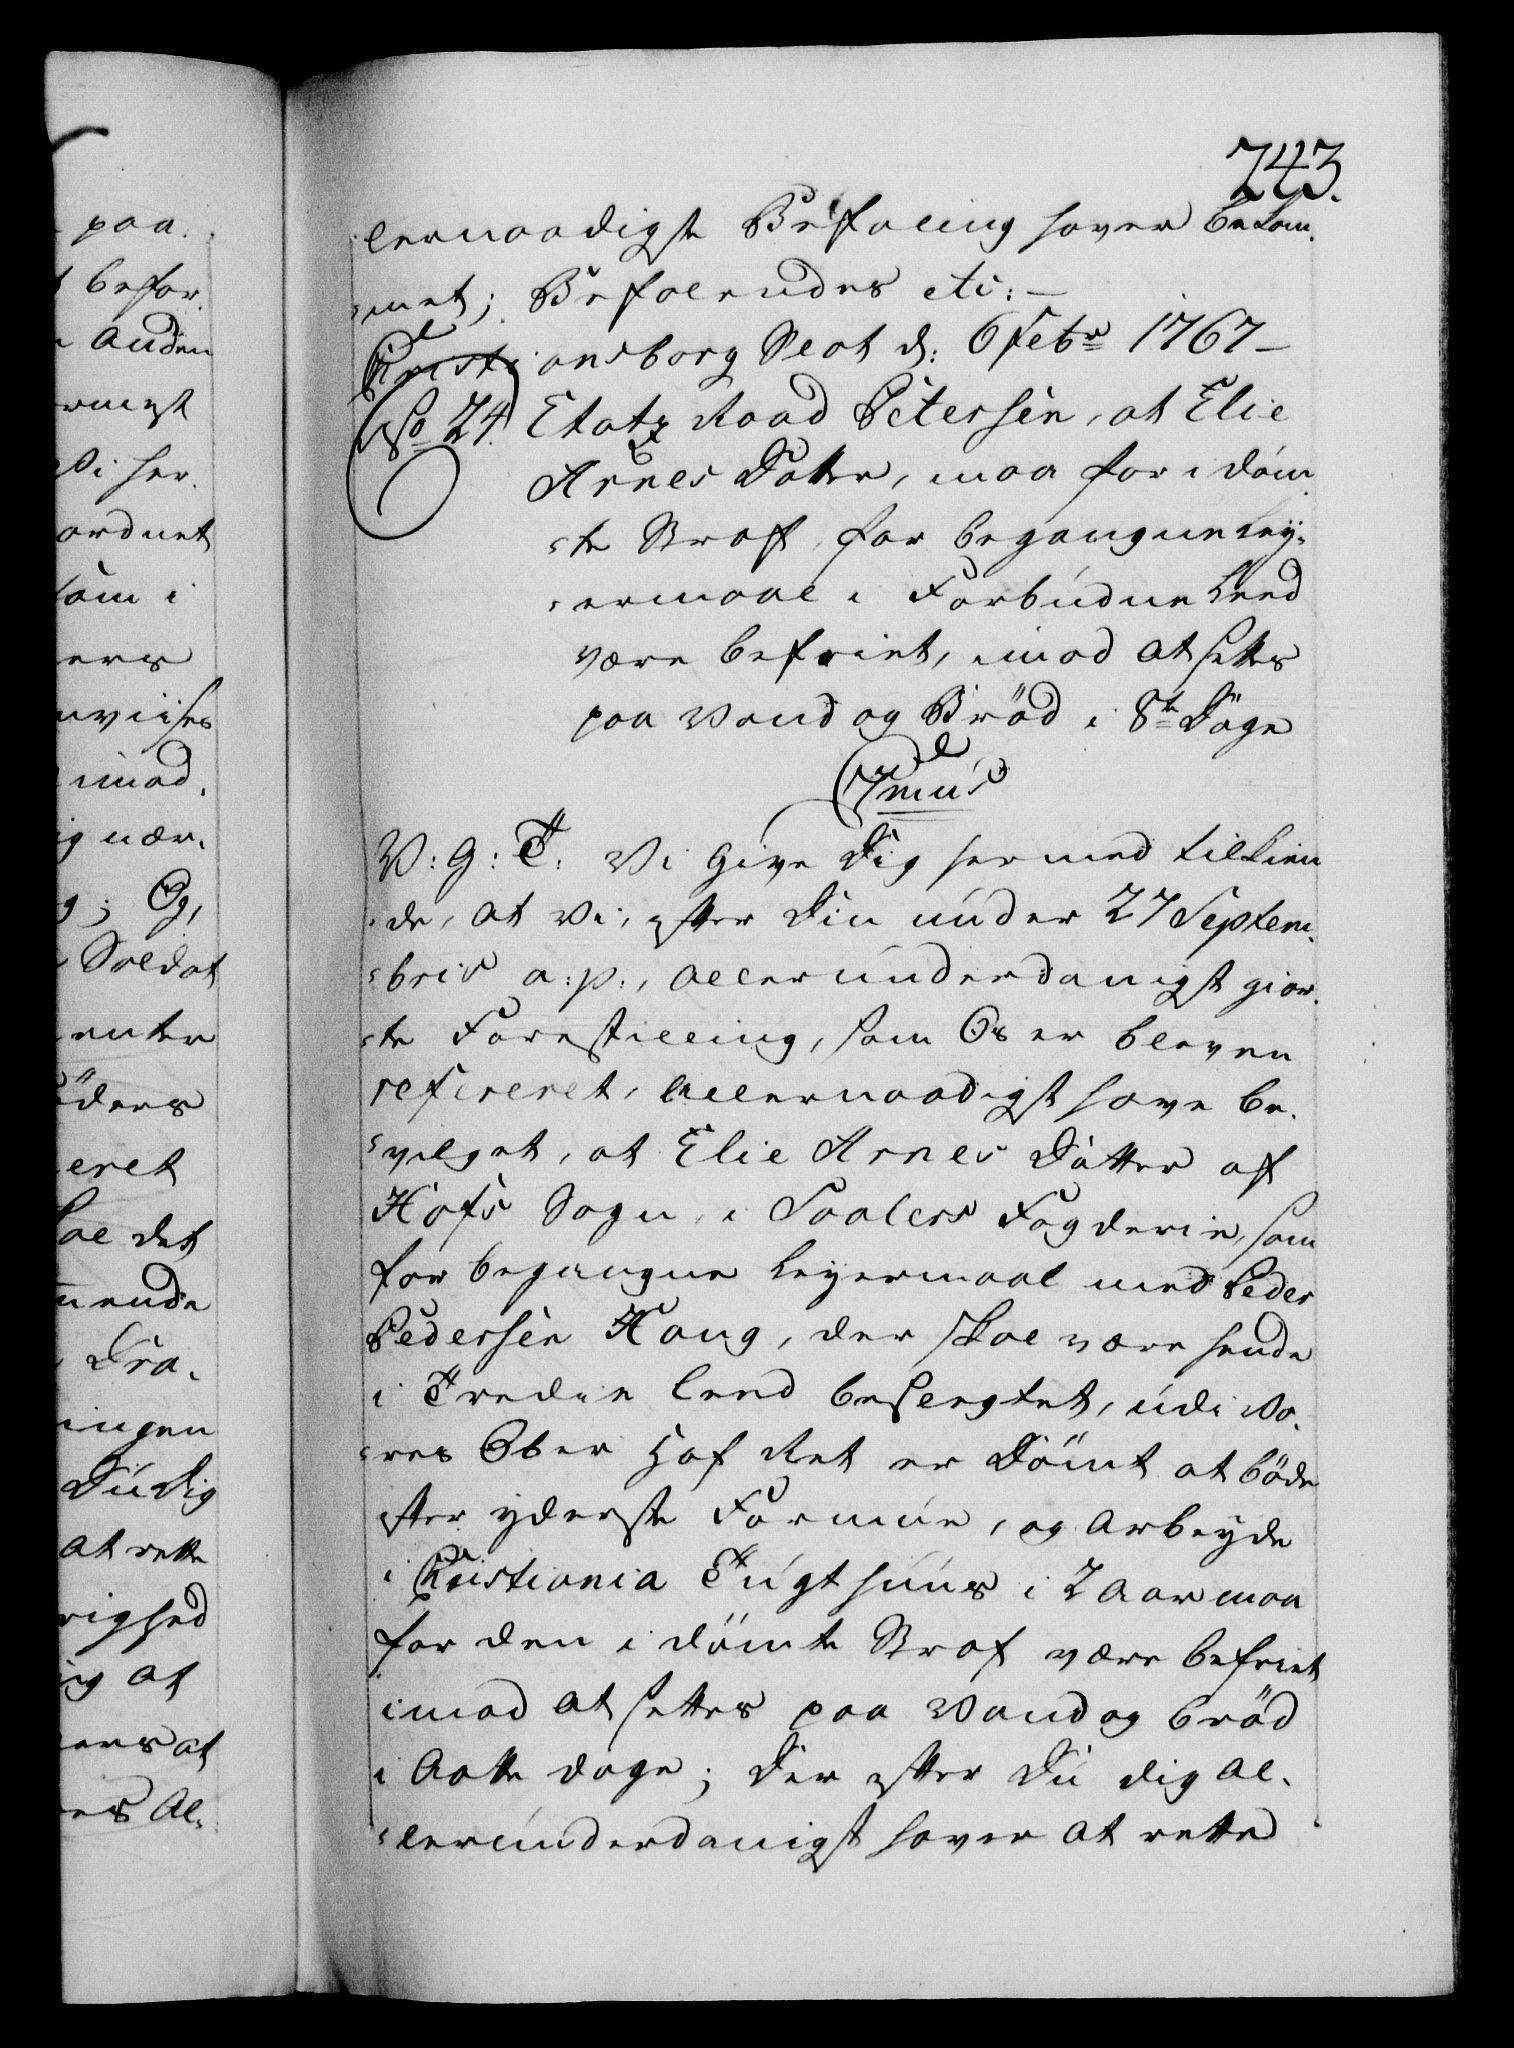 743.
paa.
befor.
Auden
Vi her.
ordnet
som i
ers
nviises
imod.
ig nær.
g; Og,
Soldat
enter
öders
eret
det
ende
Dra.
ingen
Du Dig
at rette
righed
ig at
ers at
es Al.
lernaadigste Befaling haver bekom,
,met; Befalendes etc: —
Christiansborg Slot d: 6 Febr 1767 —
No 24. Etatz Raad Petersen, at Elie
Arnes Dotter, maa for idöm
,te Straf, for begangne Ley,
,ermaal i Forbudne Leed
være befriet, imod at settes
paa Vand og Bröd i 8te Döge
V: G: T: Vi Give Dig hermed tilkien
,de, at Vi, efter Din under 27 Septem,
,bris a: p:, allerunderdanigst gior,
,te Forestilling, som Os er bleven
refereret, allernaadigst have be,
,vilget, at Elie Arnes Datter af
Hofs Sogn, i Soolers Fogderie, som
for begangne Leyermaal med Peder
Pedersen Haug, der skal være hende
i Tredie Leed beslegtet, udi Vo,
,res Ober Hof Ret er Dömt at böde
efter yderste Formue, og Arbeyde
i Christiania Tugthuus i 2 Aar maa
for den idömte Straf være befriet
imod at settes paa Vand og bröd
i Aatte dage; Der efter Du dig al,
,lerunderdanigst haver at rette